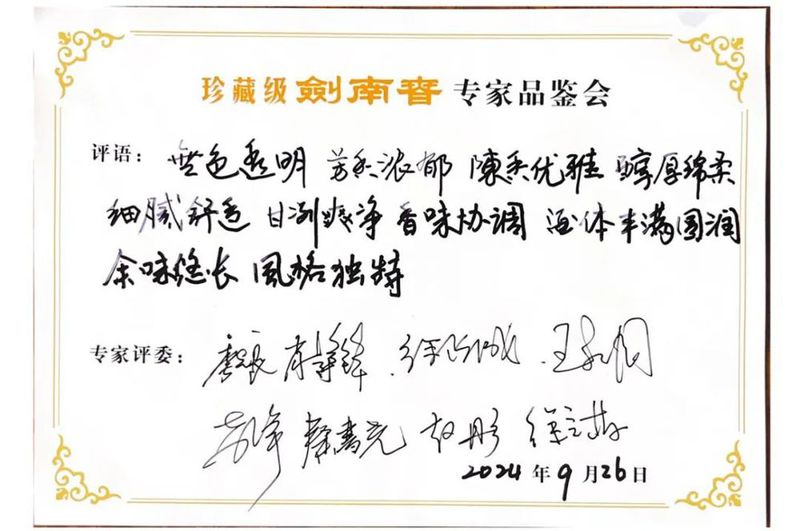 珍藏级劍南春专家品鉴会
评语：無色透明 芳香浓郁 陳香优雅 醇厚绵柔
细腻舒适 甘洌爽净 香味协调 酒体丰满圆润
余味悠长 風格独特
专家评委：
2024年9月26日